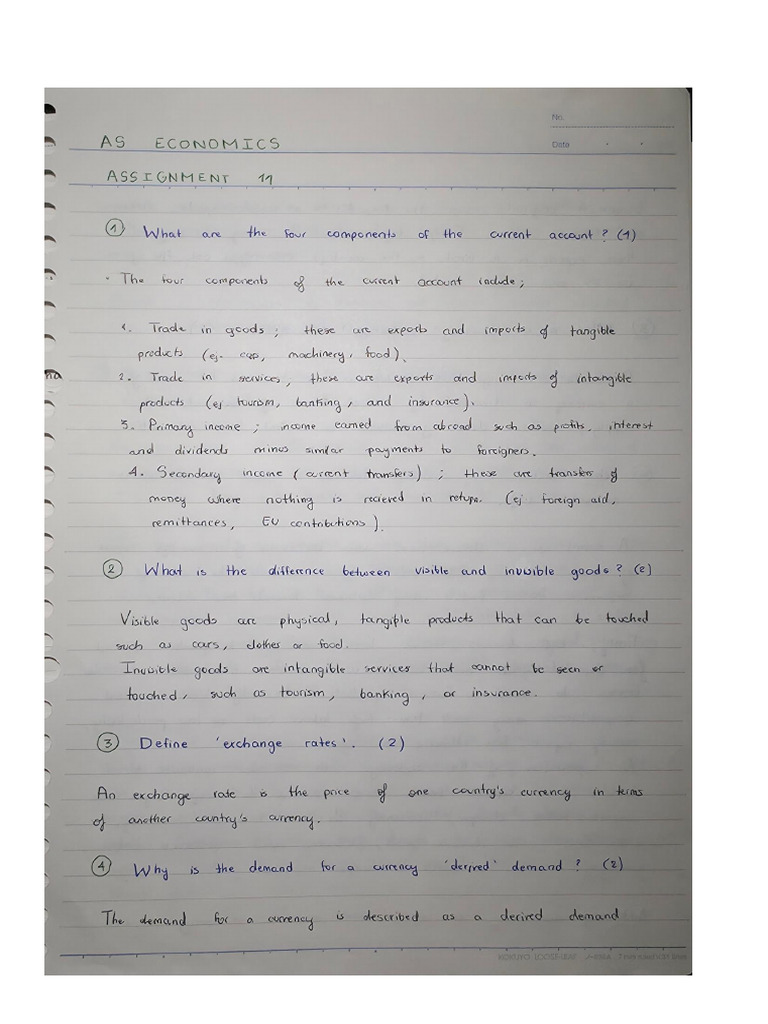 No.
Date
AS ECONOMICS
ASSIGNMENT 11
① What are the four components of the current account? (1)
· The four components of the current account include;
1. Trade in goods; these are exports and imports of tangible
products (ej. cars, machinery, food).
2. Trade in services, these are exports and imports of intangible
products (ej tourism, banking, and insurance).
3. Primary income; income earned from abroad such as profits, interest
and dividends minus similar payments to foreigners.
4. Secondary income (current transfers); these are transfers of
money where nothing is recieved in return. (ej foreign aid,
remittances, EU contributions).
② What is the difference between visible and invisible goods? (2)
Visible goods are physical, tangible products that can be touched
such as cars, clothes or food.
Invisible goods are intangible services that cannot be seen or
touched, such as tourism, banking, or insurance.
③ Define 'exchange rates'. (2)
An exchange rate is the price of one country's currency in terms
of another country's currency.
④ Why is the demand for a currency 'derived' demand? (2)
The demand for a currency is described as a derived demand
KOKUYO LOOSE-LEAF